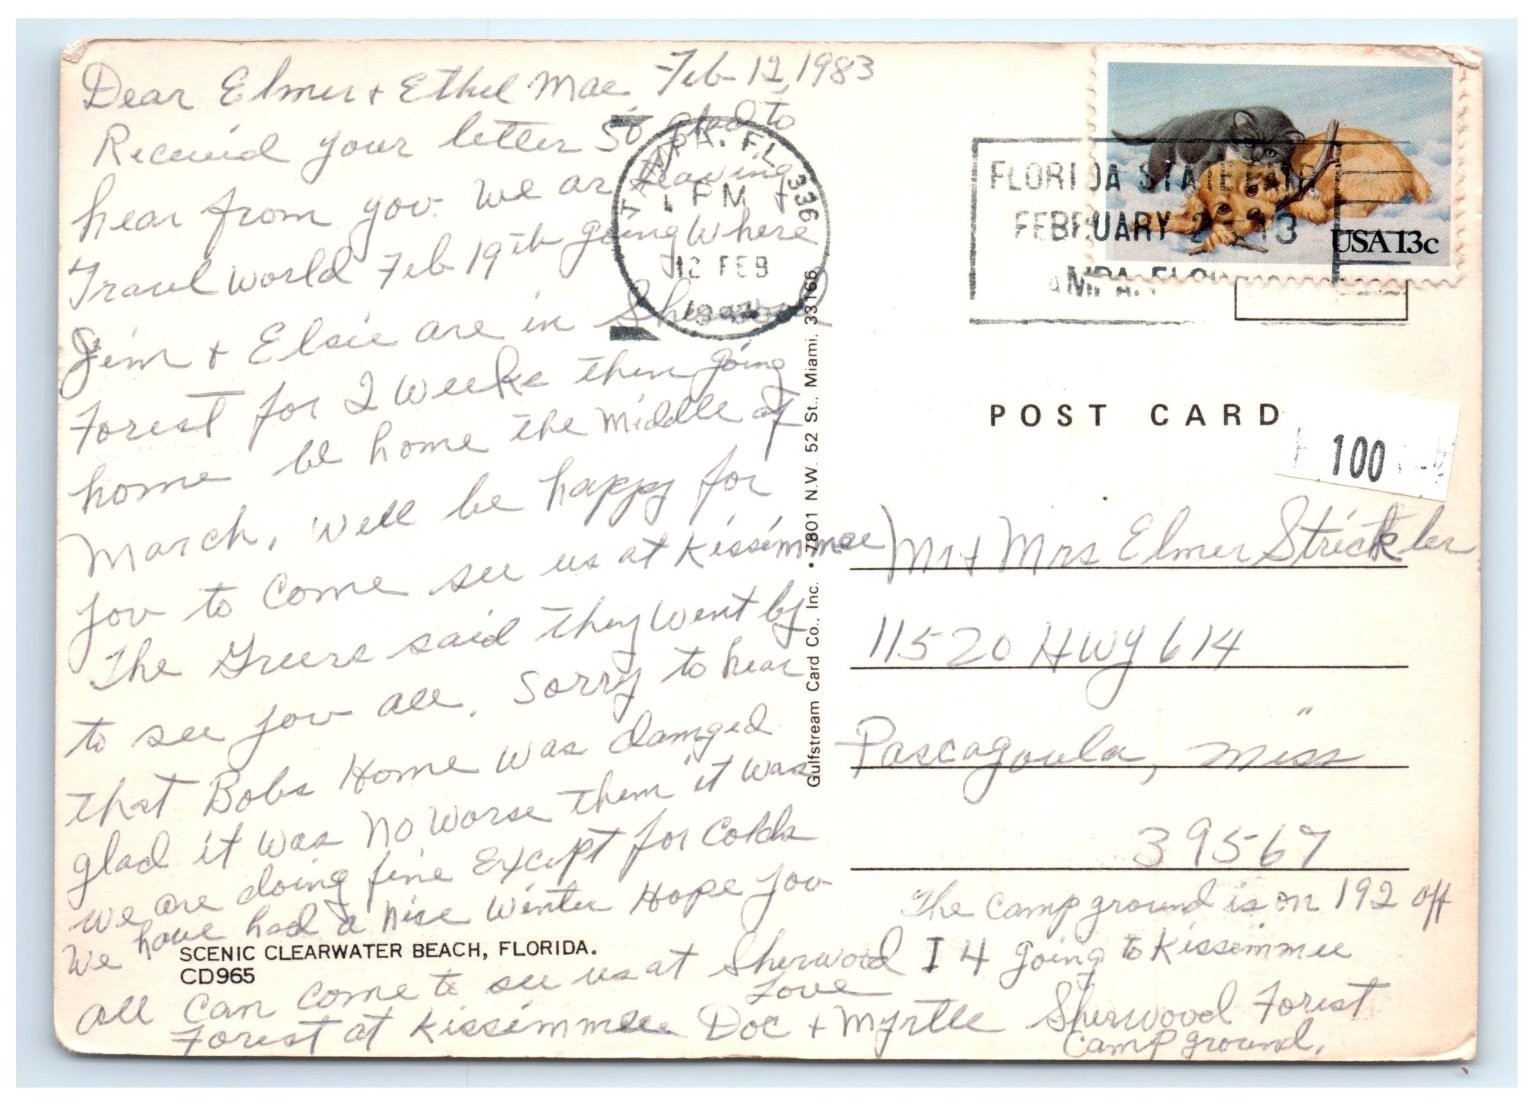 Dear Elmer + Ethel Mae Feb 12, 1983
Received your letter so glad to
hear from you. We are leaving
Travel world Feb 19th going where
Jim + Elsie are in Sherwood
Forest for 2 weeks then going
home be home the middle of
March, will be happy for
you to come see us at Kissimmee
The Greers said they went by
to see you all. Sorry to hear
that Bobs Home was damged
glad it was no worse them it was
we are doing fine Except for colds
We have had a nice winter Hope you
all can come to see us at Sherwood
Forest at Kissimmee
Love
Doc + Myrtle
SCENIC CLEARWATER BEACH, FLORIDA.
CD965
TAMPA, FL 336
PM
12 FEB
1983
Gulfstream Card Co., Inc. • 7801 N.W. 52 St., Miami, 33166
FLORIDA STATE FAIR
FEBRUARY 2 13
TAMPA, FLO
USA 13c
POST CARD
100
Mr + Mrs Elmer Strickler
11520 HWY 614
Pascagoula, Miss
39567
The camp ground is on 192 off
I 4 going to Kissimmee
Sherwood Forest
Camp ground.